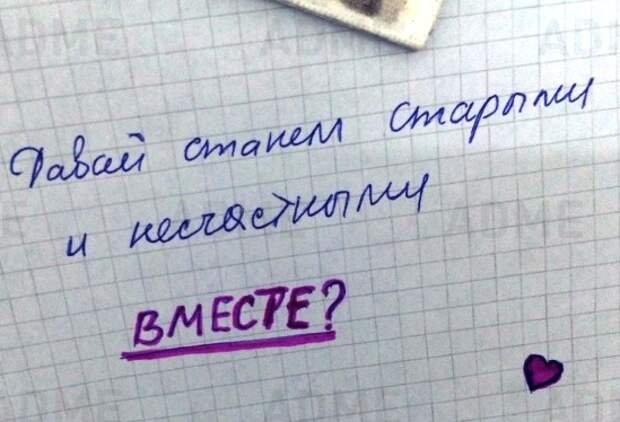 Давай станем старыми
и несчастными
ВМЕСТЕ?
ADME
ADME
ADME
ADME